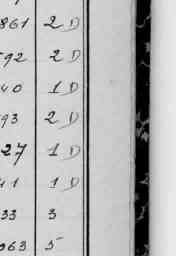 861 2 D
592 2 D
40 1 D
93 2 D
27 1 D
41 1 D
33 3
063 5